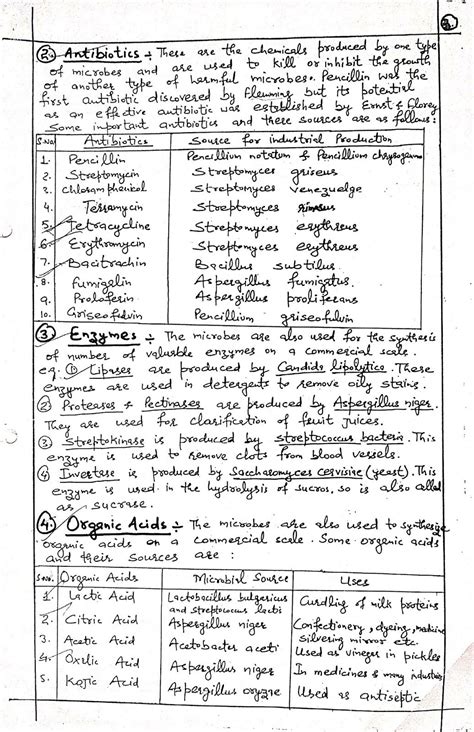 ②. Antibiotics ÷ These are the chemicals produced by one type
of microbes and are used to kill or inhibit the growth
of another type of harmful microbes. Pencillin was the
first antibiotic discovered by Flewming but its potential
as an effective antibiotic was established by Ernst & Florey
Some important antibiotics and there sources are as follows:
S.No Antibiotics Source for industrial Production
1. Pencillin Pencillium notatum & Pencillium chrysogenum
2. Streptomycin Streptomyces griseus
3. Chloramphenicol Streptomyces venezuelge
4. Terramycin Streptomyces rimosus
5. Tetracycline Streptomyces erythreus
6. Erythromycin Streptomyces erythreus
7. Bacitrachin Bacillus subtilus
8. Fumigalin Aspergillus fumigatus
9. Proloferin Aspergillus prolifecans
10. Griseofulvin Pencillium griseofulvin
③ Enzymes ÷ The microbes are also used for the synthesis
of number of valuable enzymes on a commercial scale.
eg. ① Lipases are produced by Candida lipolytica. These
enzymes are used in detergents to remove oily stains.
② Proteases & Pectinases are produced by Aspergillus niger.
They are used for clarification of fruit juices.
③ Streptokinase is produced by streptococcus bacteria. This
enzyme is used to remove clots from blood vessels.
④ Invertase is produced by Saccharomyces cervisiae (yeast). This
enzyme is used in the hydrolysis of sucros, so is also called
as sucrase.
④. Organic Acids ÷ The microbes are also used to synthesize
organic acids on a commercial scale. Some organic acids
and their sources are :
S.No. Organic Acids Microbial Source Uses
1. Lactic Acid Lactobacillus bulgericus and streptococcus lacti Curdling of milk proteins
2. Citric Acid Aspergillus niger Confectionery, dyeing, medicine
3. Acetic Acid Acetobacter aceti silvering mirror etc. Used as vinegar in pickles
4. Oxelic Acid Aspergillus niger In medicines & many industries
5. Kojic Acid Aspergillus oryzae Used as antiseptic